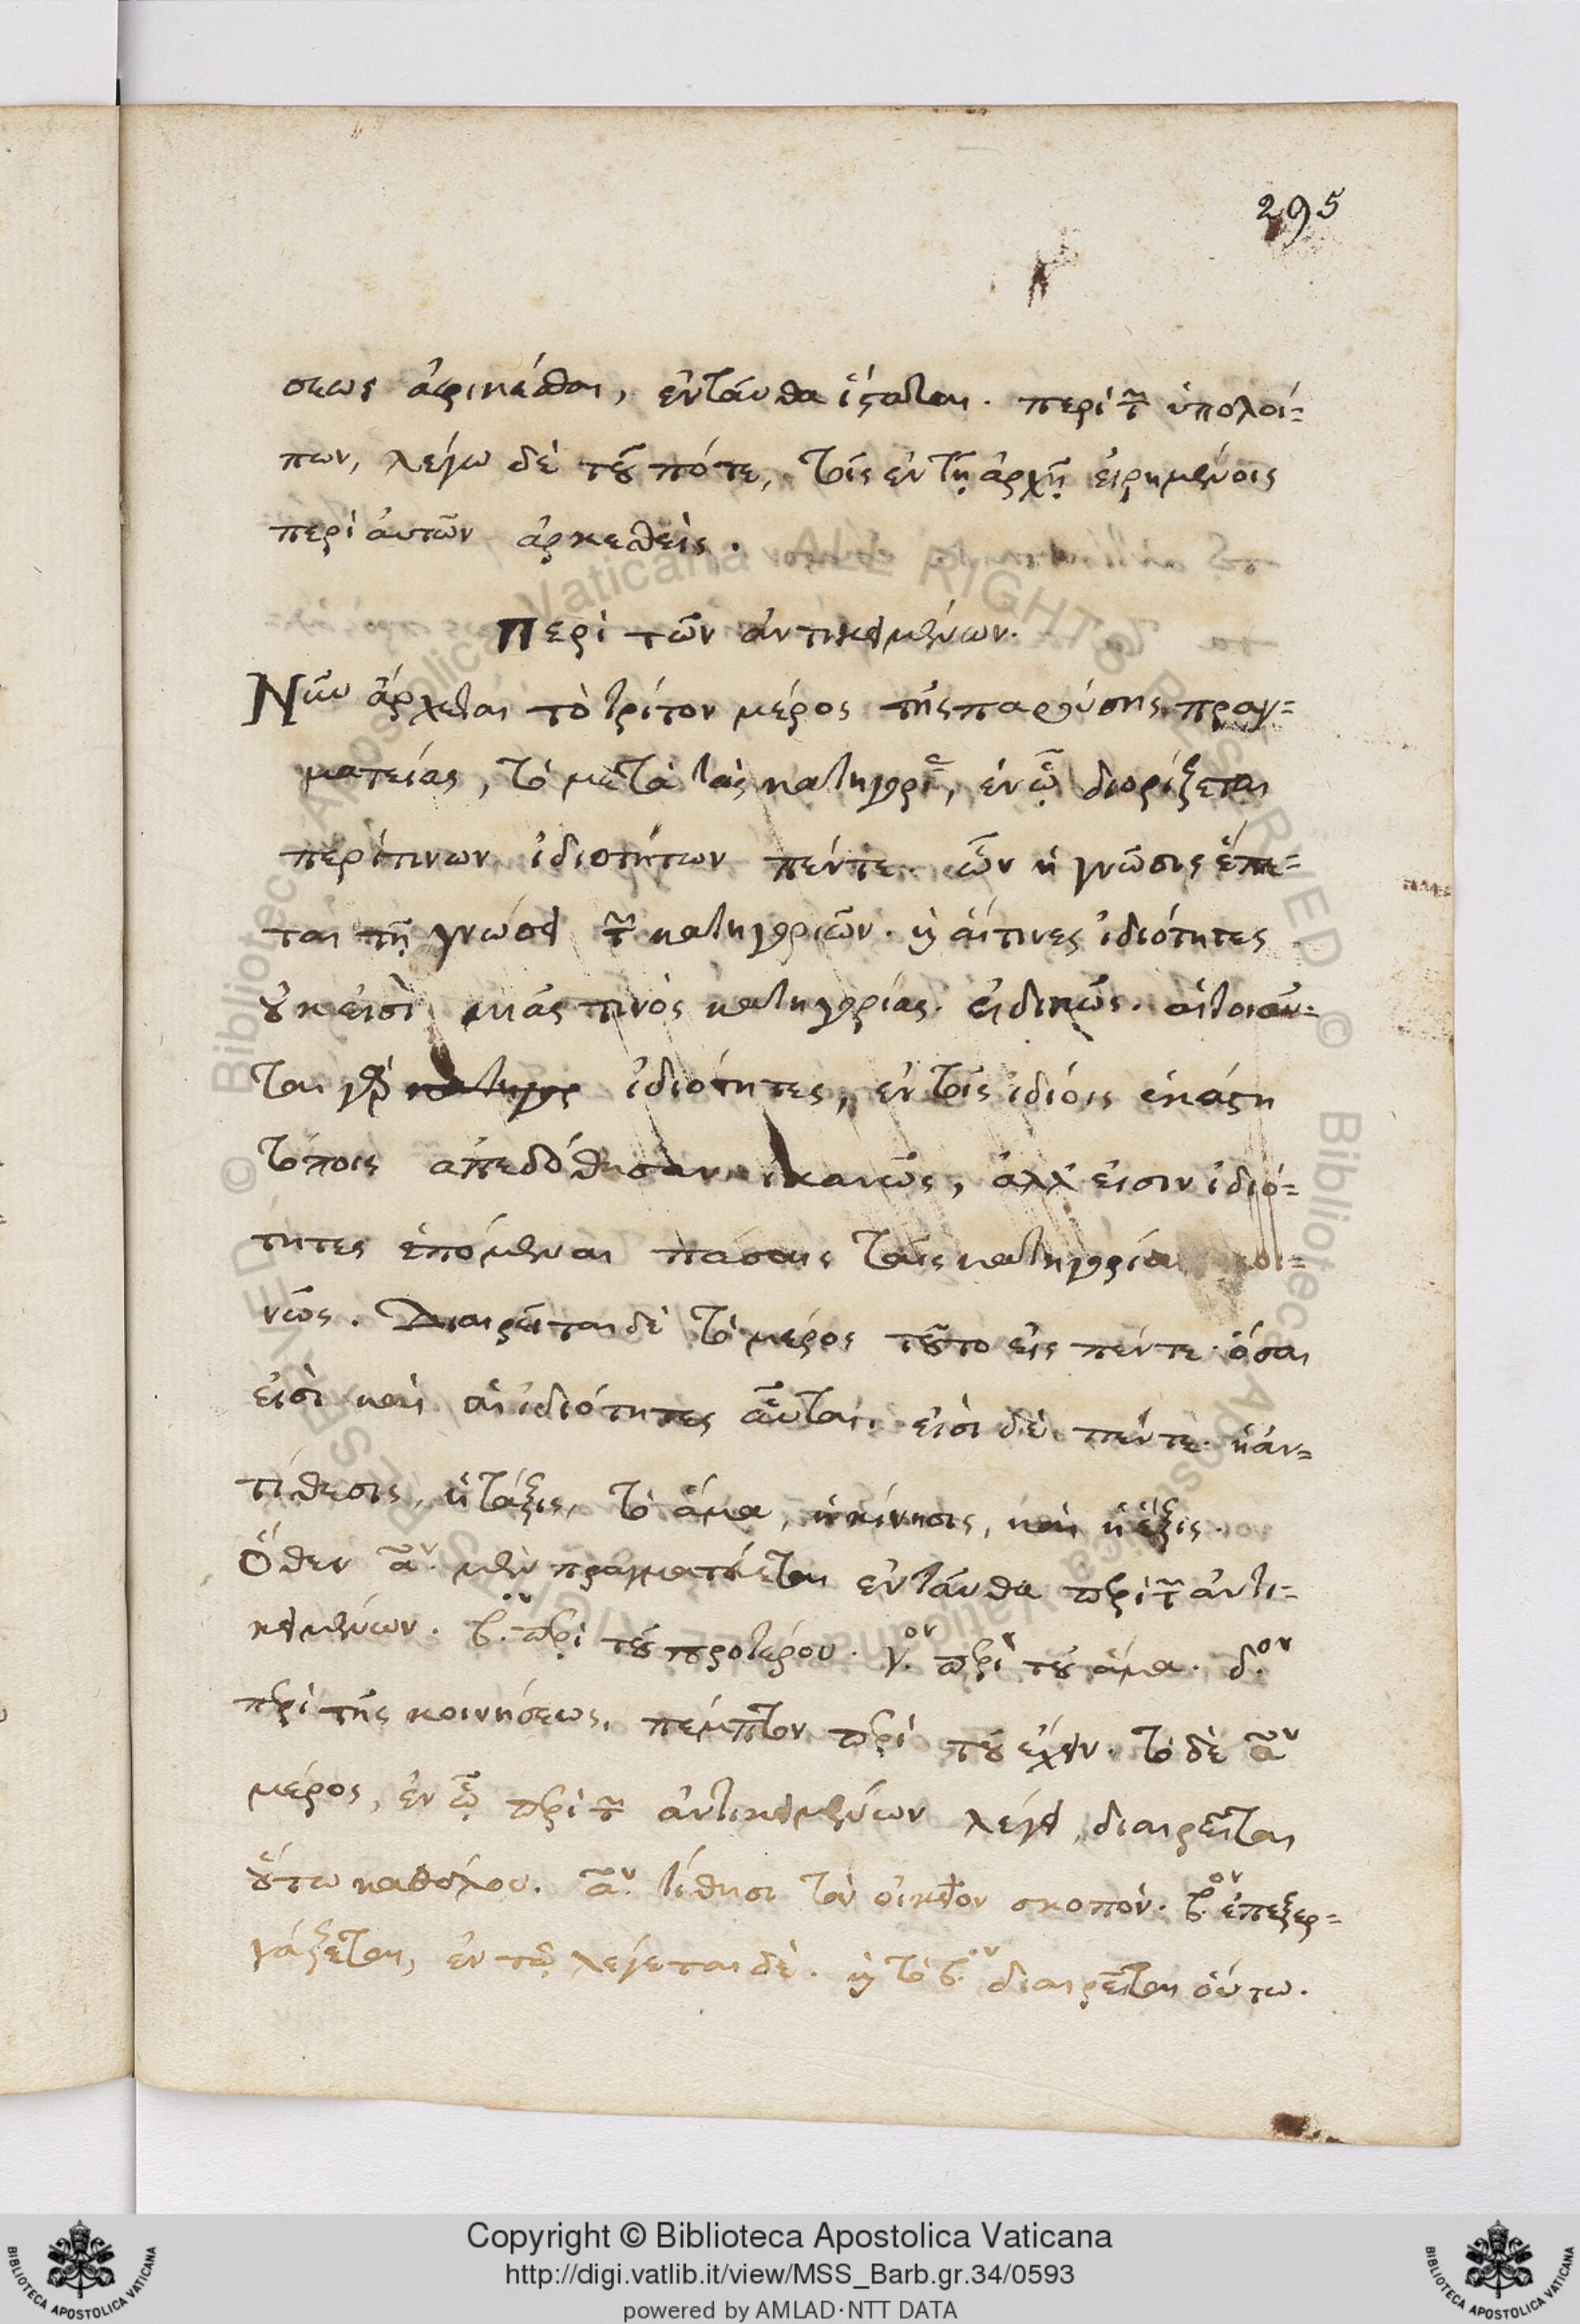 295
σεως ἀφικέσθαι, ἐνταύθα ἵσταται. περὶ τῶν ὑπολοί=
πων, λέγω δὲ τοῦ πότε, τοῖς ἐν τῇ ἀρχῇ εἰρημένοις
περὶ ἀυτῶν ἀρκεσθείς.
Περὶ τῶν ἀντικειμένων.
Νῦν ἄρχεται τὸ τρίτον μέρος τῆς παρούσης πραγ=
ματείας, τὸ μετὰ τὰς κατηγορίας, ἐν ᾧ διορίζεται
περίτινων ἰδιοτήτων πέντε. ὧν ἡ γνῶσις ἕπε=
ται τῇ γνώσει τῶν κατηγοριῶν. καὶ αἵτινες ἰδιότητες
οὐκ εἰσὶ μιᾶς τινὸς κατηγορίας. εἰδικῶς. αἱ τοιαῦ=
ται γὰρ κατηγορ ἰδιότητες, ἐν τοῖς ἰδίοις ἑκάστη
τόποις απεδόθησαν ἱκανῶς, ἀλλ' εἰσιν ἰδιό=
τητες ἑπόμεναι πάσαις ταῖς κατηγορία κοι=
νῶς. Διαιρεῖται δὲ τὸ μέρος τοῦτο εἰς πέντε ὅσαι
εἰσὶ καὶ αἱ ἰδιότητες αὗται. εἰσὶ δὲ πέντε. ἡ ἀν=
τίθεσις, ἡ τάξις, τὸ ἅμα, ἡ κίνησις, καὶ ἡ ἕξις.
Ὅθεν αον. μὲν πραγματεύεται ἐνταύθα περὶ τῶν ἀντι=
κειμένων. βον. περὶ τοῦ προτέρου. γ.ον περὶ τοῦ ἅμα. δ.ον
περὶ τῆς κοινήσεως, πέμπτον περὶ τοῦ ἔχειν. τὸ δὲ αον
μέρος, ἐν ᾧ περὶ τῶν ἀντικειμένων λέγει, διαιρεῖται
οὕτω καθόλου. αον. τίθησι τὸν οἰκεῖον σκοπόν. β.ον ἐπεξερ=
γάζεται, ἐν τῷ λέγεται δὲ. καὶ τὸ β.ον διαιρεῖται οὕτω.
Copyright © Biblioteca Apostolica Vaticana
http://digi.vatlib.it/view/MSS_Barb.gr.34/0593
powered by AMLAD·NTT DATA